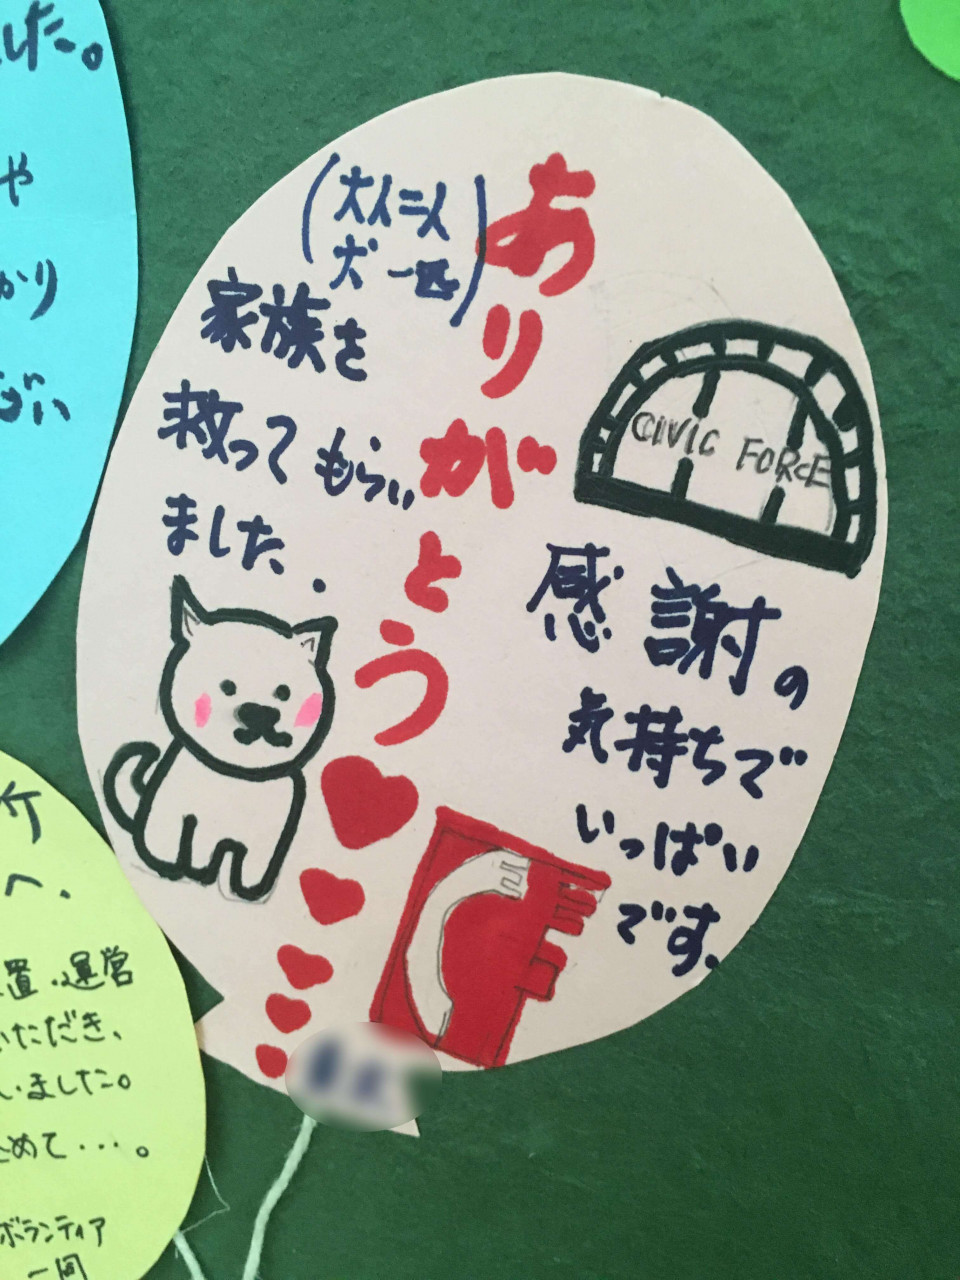 ありがとう
CIVIC FORCE
感謝の
気持ちで
いっぱい
です。
(大人二人
犬一匹)
家族を
救ってもらい
ました。
した。
や
かり
ざい
ケ
へ.
置・運営
いただき、
いました。
込めて…。
ボランティア
一同